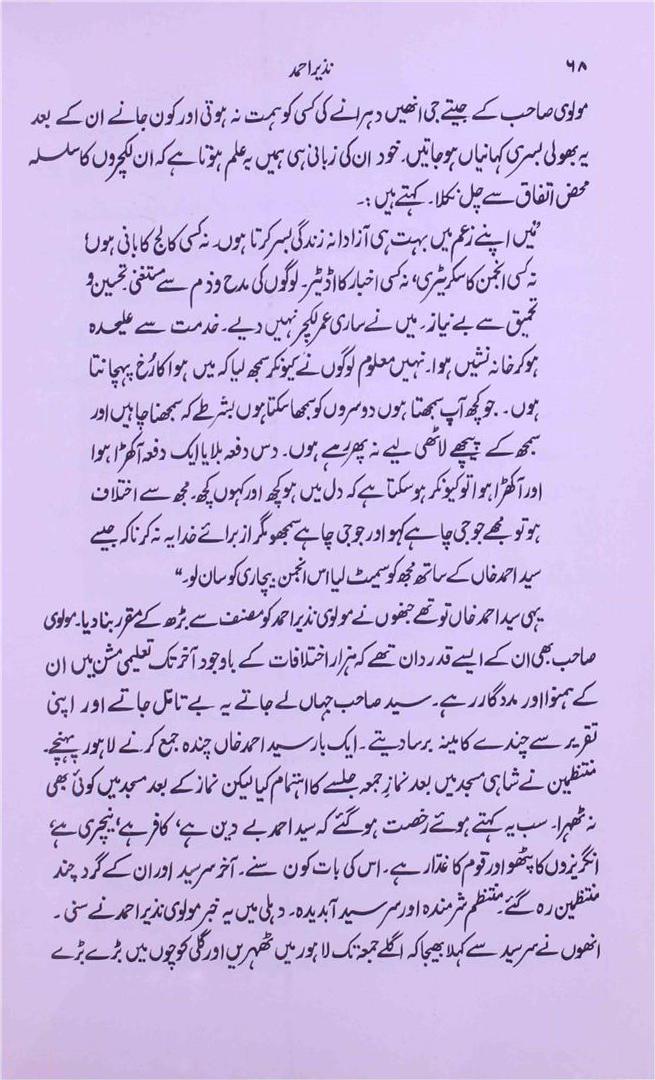 ۶۸
نذیر احمد
مولوی صاحب کے جیتے جی انھیں دہرانے کی کسی کو ہمت نہ ہوتی اور کون جانے ان کے بعد
یہ بھولی بسری کہانیاں ہو جاتیں۔ خود ان کی زبانی ہی ہمیں یہ علم ہوتا ہے کہ ان لکچروں کا سلسلہ
محض اتفاق سے چل نکلا۔ کہتے ہیں :۔
"میں اپنے زعم میں بہت ہی آزادانہ زندگی بسر کرتا ہوں۔ نہ کسی کالج کا بانی ہوں،
نہ کسی انجمن کا سکریٹری، نہ کسی اخبار کا اڈیٹر۔ لوگوں کی مدح و ذم سے مستغنی تحسین و
تحمیق سے بے نیاز۔ میں نے ساری عمر لکچر نہیں دیے۔ خدمت سے علیحدہ
ہو کر خانہ نشیں ہوا۔ نہیں معلوم لوگوں نے کیونکر سمجھ لیا کہ میں ہوا کا رُخ پہچانتا
ہوں۔ جو کچھ آپ سمجھتا ہوں دوسروں کو سمجھا سکتا ہوں بشرطے کہ سمجھنا چاہیں اور
سمجھ کے پیچھے لاٹھی لیے نہ پھر رہے ہوں۔ دس دفعہ بلایا ایک دفعہ آکھڑا ہوا
اور آکھڑا ہوا تو کیونکر ہو سکتا ہے کہ دل میں ہو کچھ اور کہوں کچھ۔ مجھ سے اختلاف
ہو تو مجھے جو جی چاہے کہو اور جو جی چاہے سمجھو مگر از برائے خدا یہ نہ کرنا کہ جیسے
سید احمد خاں کے ساتھ مجھ کو سمیٹ لیا اس انجمن بیچاری کو سان لو۔"
یہی سید احمد خاں تو تھے جنھوں نے مولوی نذیر احمد کو مصنف سے بڑھ کے مقرر بنا دیا۔ مولوی
صاحب بھی ان کے ایسے قدردان تھے کہ ہزار اختلافات کے باوجود آخر تک تعلیمی مشن میں ان
کے ہمنوا اور مددگار رہے۔ سید صاحب جہاں لے جاتے یہ بے تامل جاتے اور اپنی
تقریر سے چندے کا مینہ برسا دیتے۔ ایک بار سید احمد خاں چندہ جمع کرنے لاہور پہنچے۔
منتظمین نے شاہی مسجد میں بعد نماز جمعہ جلسے کا اہتمام کیا لیکن نماز کے بعد مسجد میں کوئی بھی
نہ ٹھہرا۔ سب یہ کہتے ہوئے رخصت ہو گئے کہ سید احمد بے دین ہے، کافر ہے، نیچری ہے،
انگریزوں کا پٹھو اور قوم کا غدار ہے۔ اس کی بات کون سنے۔ آخر سرسید اور ان کے گرد چند
منتظمین رہ گئے۔ منتظم شرمندہ اور سرسید آبدیدہ۔ دہلی میں یہ خبر مولوی نذیر احمد نے سنی۔
انھوں نے سرسید سے کہلا بھیجا کہ اگلے جمعہ تک لاہور میں ٹھہریں اور گلی کوچوں میں بڑے بڑے